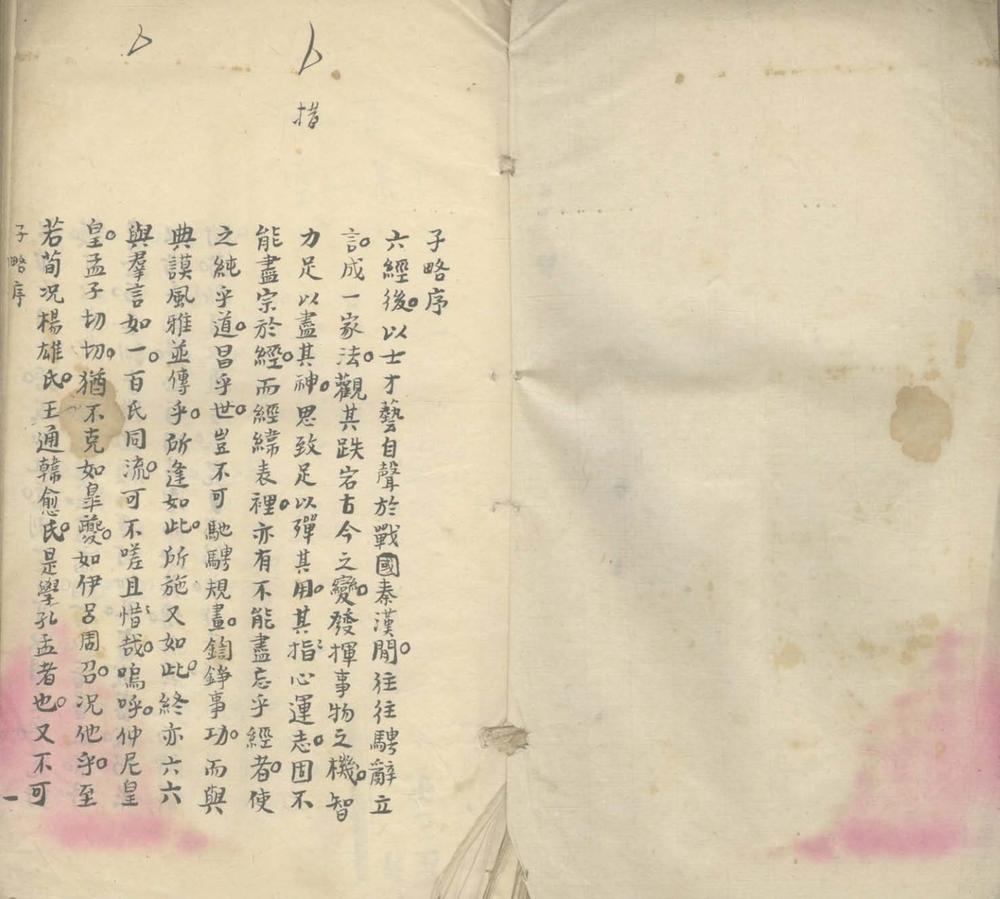 措
子略序
六經後。以士才藝自聲於戰國秦漢間。往往騁辭立
言。成一家法。觀其跌宕古今之變。發揮事物之機。智
力足以盡其神。思致足以殫其用。其指心運志。固不
能盡宗於經。而經緯表裡。亦有不能盡忘乎經者。使
之純乎道。昌乎世。豈不可馳騁規畫。鏗錚事功。而與
典謨風雅並傳乎。所逢如此。所施又如此。終亦六六
與羣言如一。百氏同流。可不嗟且惜哉。嗚呼。仲尼皇
皇。孟子切切。猶不克如皐夔。如伊呂周召。况他乎。至
若荀况楊雄氏。王通韓愈氏。是學孔孟者也。又不可
子略序
一